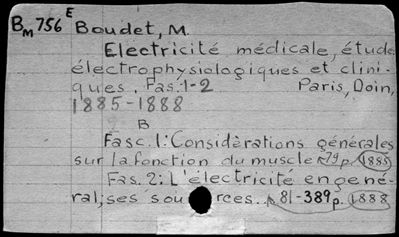 BM 756 E Boudet, M.
Electricité médicale, étude
électrophysiologiques et clini-
ques. Fas. 1-2 Paris, Doin,
1885-1888
B
Fasc. 1: Considèrations générales
sur la fonction du muscle 79 p. 1885
Fas. 2: L'électricité en géné-
ral; ses sources. 81-389 p. 1888